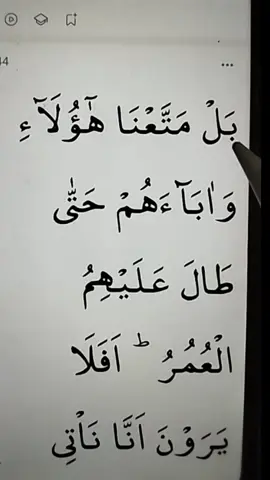 44
بَلْ مَتَّعْنَا هٰۤؤُلَآءِ
وَاٰبَآءَهُمْ حَتّٰى
طَالَ عَلَيْهِمُ
الْعُمُرُ ؕ اَفَلَا
يَرَوْنَ اَنَّا نَاْتِى